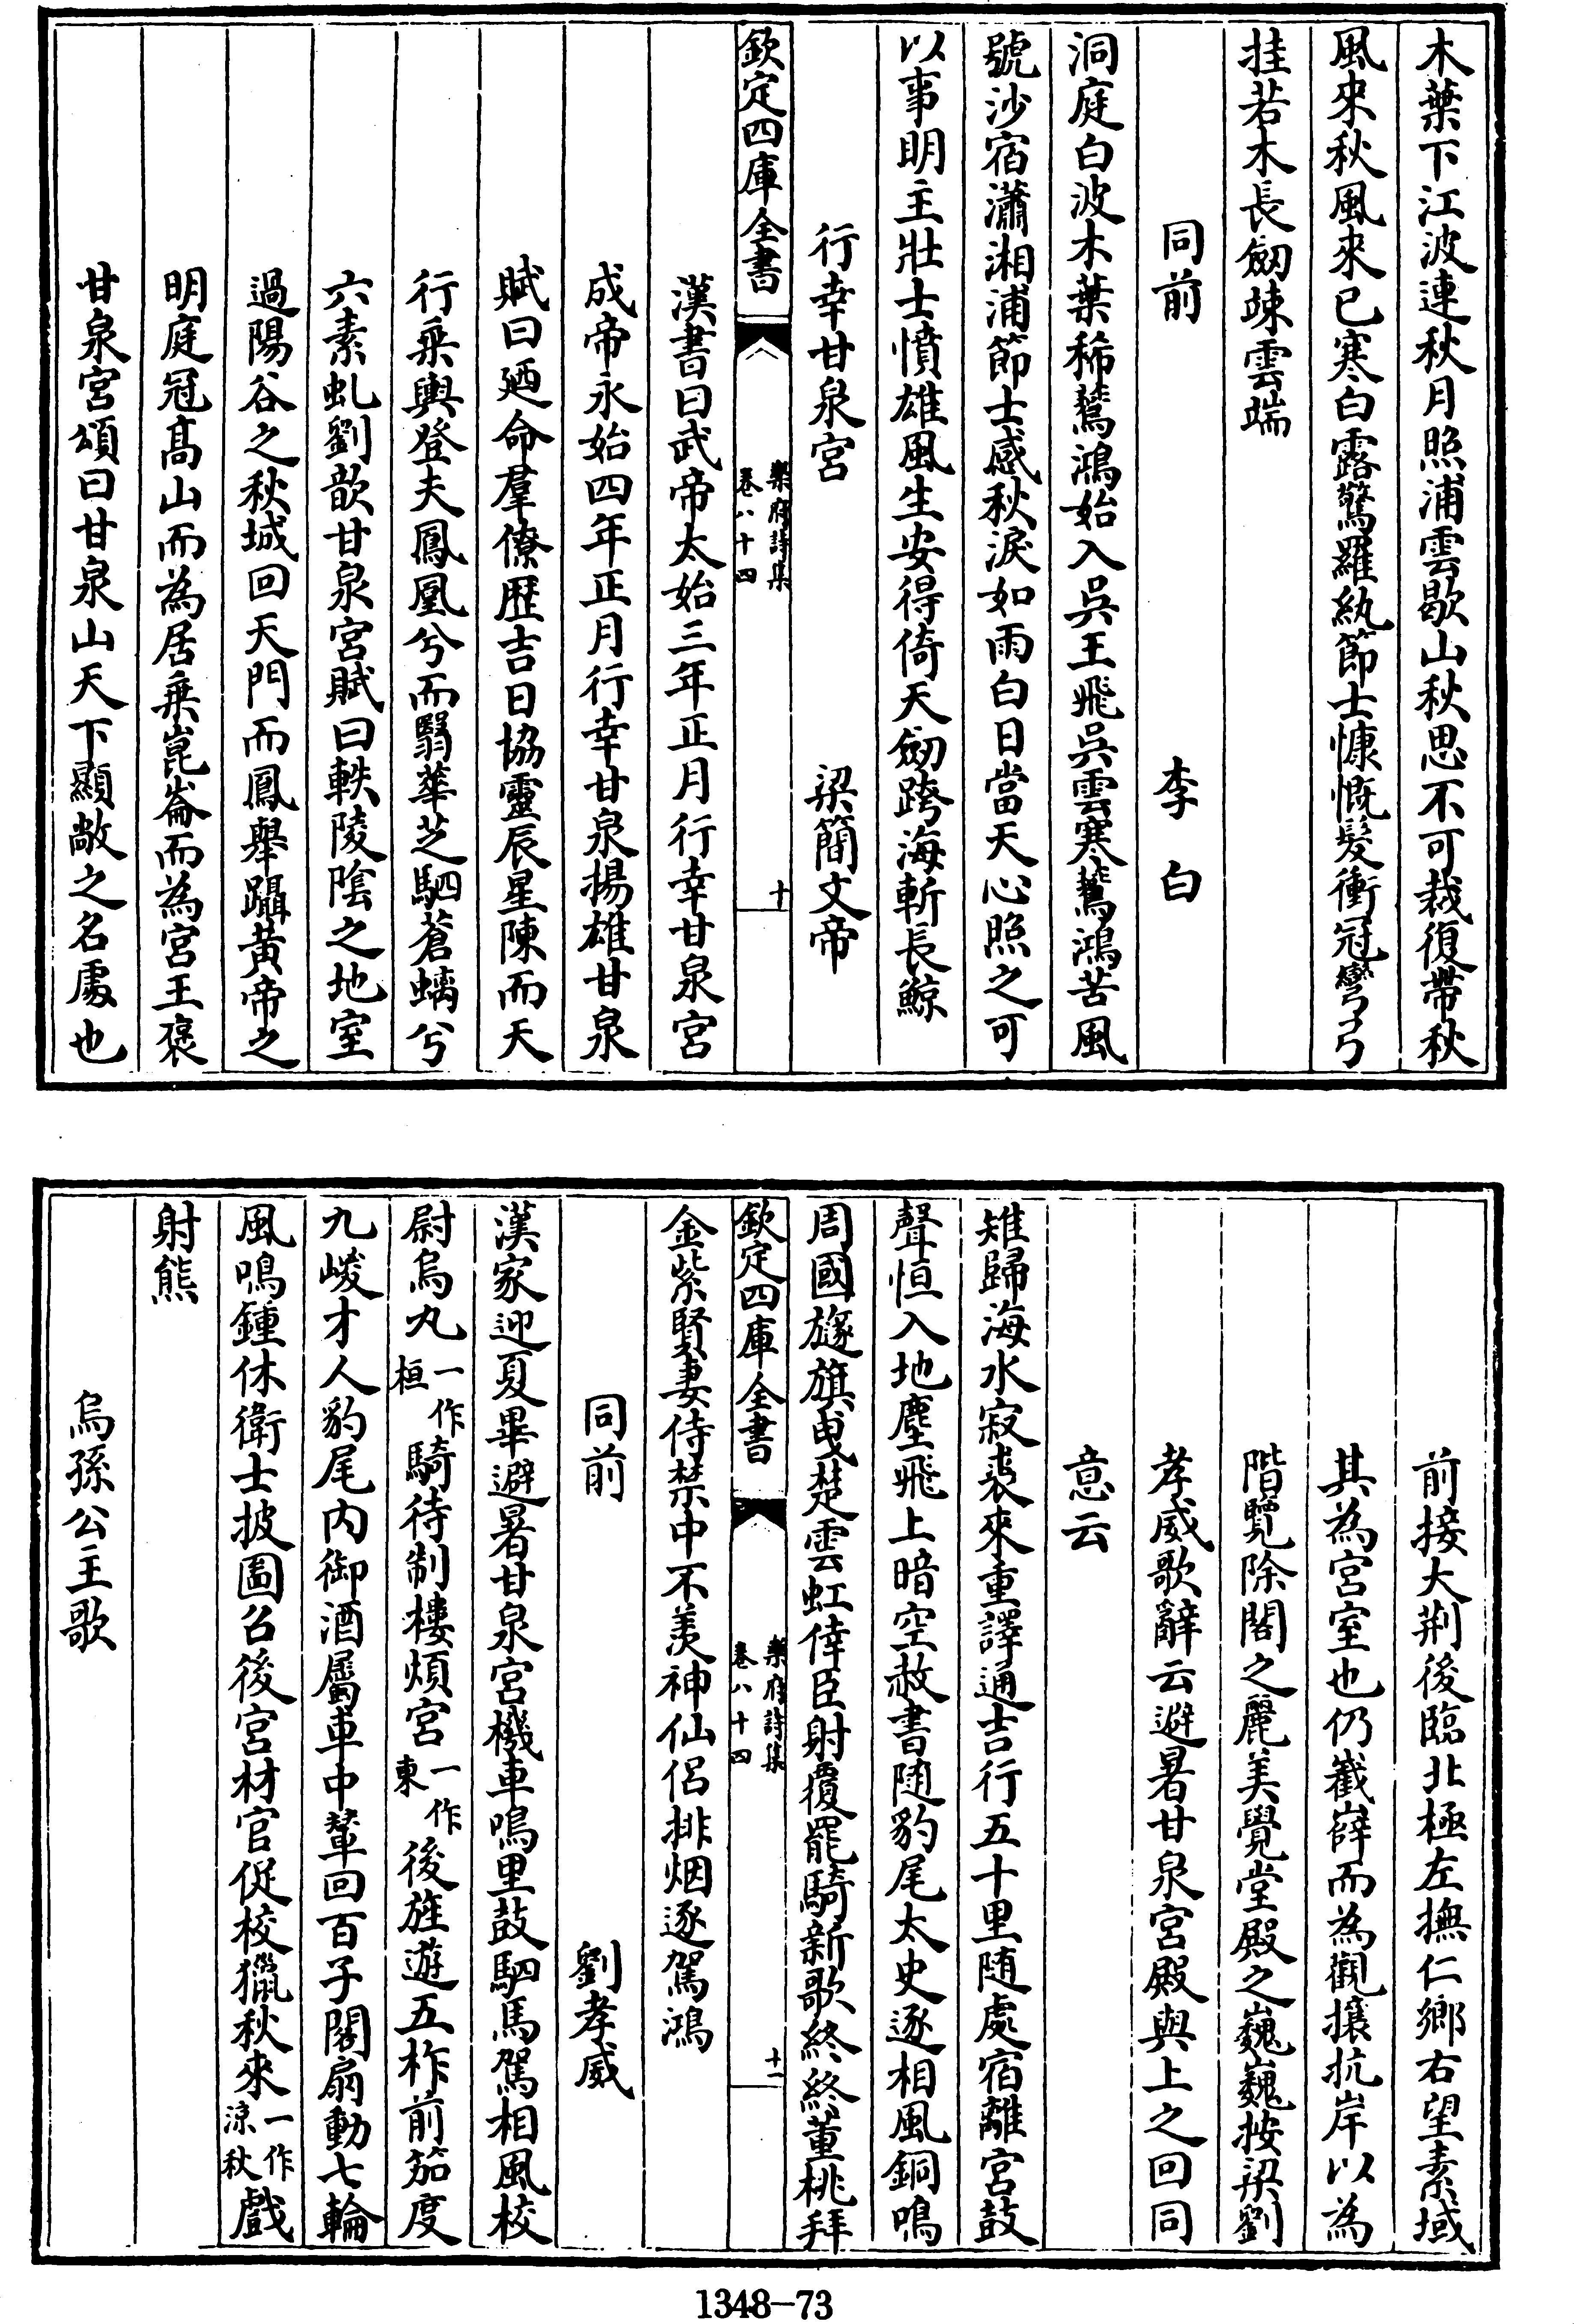 木葉下江波連秋月照浦雲歇山秋思不可裁復帶秋
風來秋風來已寒白露驚羅紈節士慷慨髮衝冠彎弓
挂若木長劒竦雲端
同前 李白
洞庭白波木葉稀鷰鴻始入吳王飛吳雲寒鷰鴻苦風
號沙宿瀟湘浦節士感秋淚如雨白日當天心照之可
以事明主壯士憤雄風生安得倚天劒跨海斬長鯨
行幸甘泉宮 梁簡文帝
欽定四庫全書 樂府詩集 卷八十四 十
漢書曰武帝太始三年正月行幸甘泉宮
成帝永始四年正月行幸甘泉揚雄甘泉
賦曰廼命羣僚歴吉日協靈辰星陳而天
行乗輿登夫鳳凰兮而翳華芝駟蒼螭兮
六素虬劉歆甘泉宮賦曰軼陵陰之地室
過陽谷之秋城回天門而鳳舉躡黃帝之
明庭冠髙山而為居乗崑崙而為宮王褒
甘泉宮頌曰甘泉山天下顯敞之名處也
前接大荆後臨北極左撫仁鄉右望素域
其為宮室也仍嶻嶭而為觀攘抗岸以為
階覽除閣之麗美覺堂殿之巍巍按梁劉
孝威歌辭云避暑甘泉宮殿與上之回同
意云
雉歸海水寂裘來重譯通吉行五十里随處宿離宮鼓
聲恒入地塵飛上暗空赦書随豹尾太史逐相風銅鳴
周國旞旗曵楚雲虹倖臣射覆罷騎新歌終終董桃拜
欽定四庫全書 樂府詩集 卷八十四 十一
金紫賢妻侍禁中不羡神仙侶排烟逐駕鴻
同前 劉孝威
漢家迎夏畢避暑甘泉宮機車鳴里鼓駟馬駕相風校
尉烏丸一作桓騎待制樓煩宮一作東後旌遊五柞前笳度
九嵕才人豹尾内御酒屬車中輦回百子閣扇動七輪
風鳴鍾休衛士披圖召後宮材官促校獵秋來一作涼秋戲
射熊
烏孫公主歌
1348-73